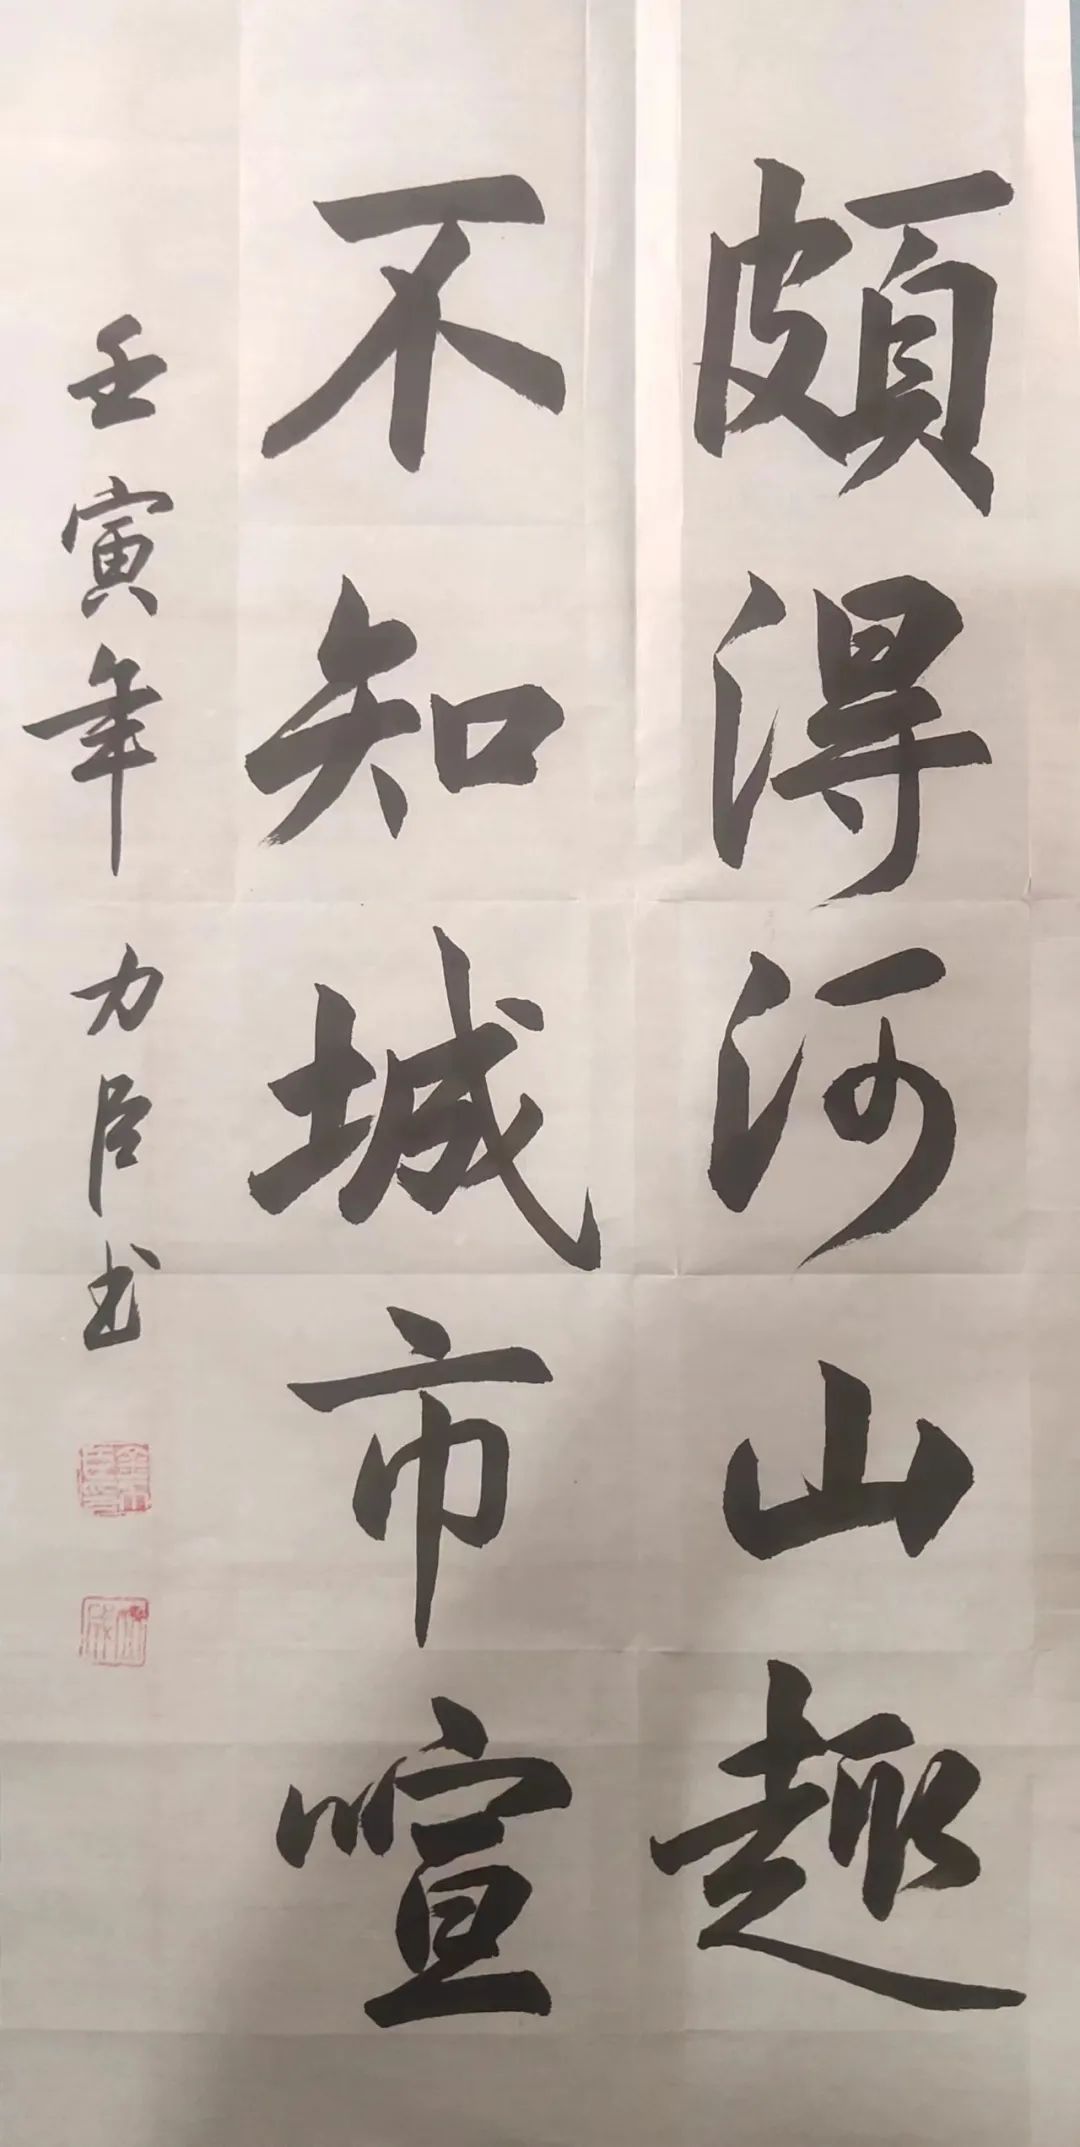 頗得河山趣
不知城市喧
壬寅年 力臣书